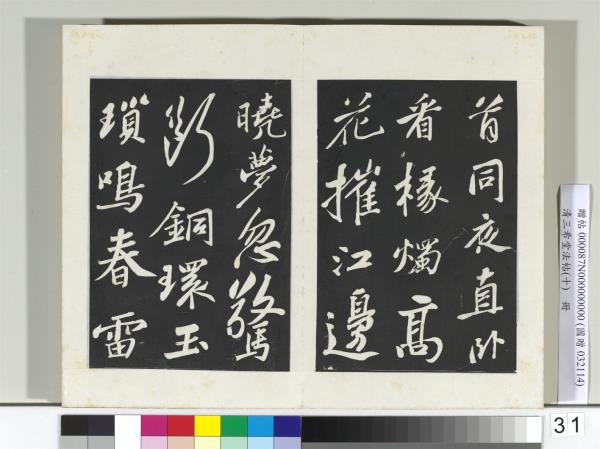 首同夜直卧
看椽燭高
花摧江邊
曉夢忽驚
斷銅環玉
瑣鳴春雷
贈帖 000087N000000000 (國贈 032114)
清三希堂法帖(十) 冊
31